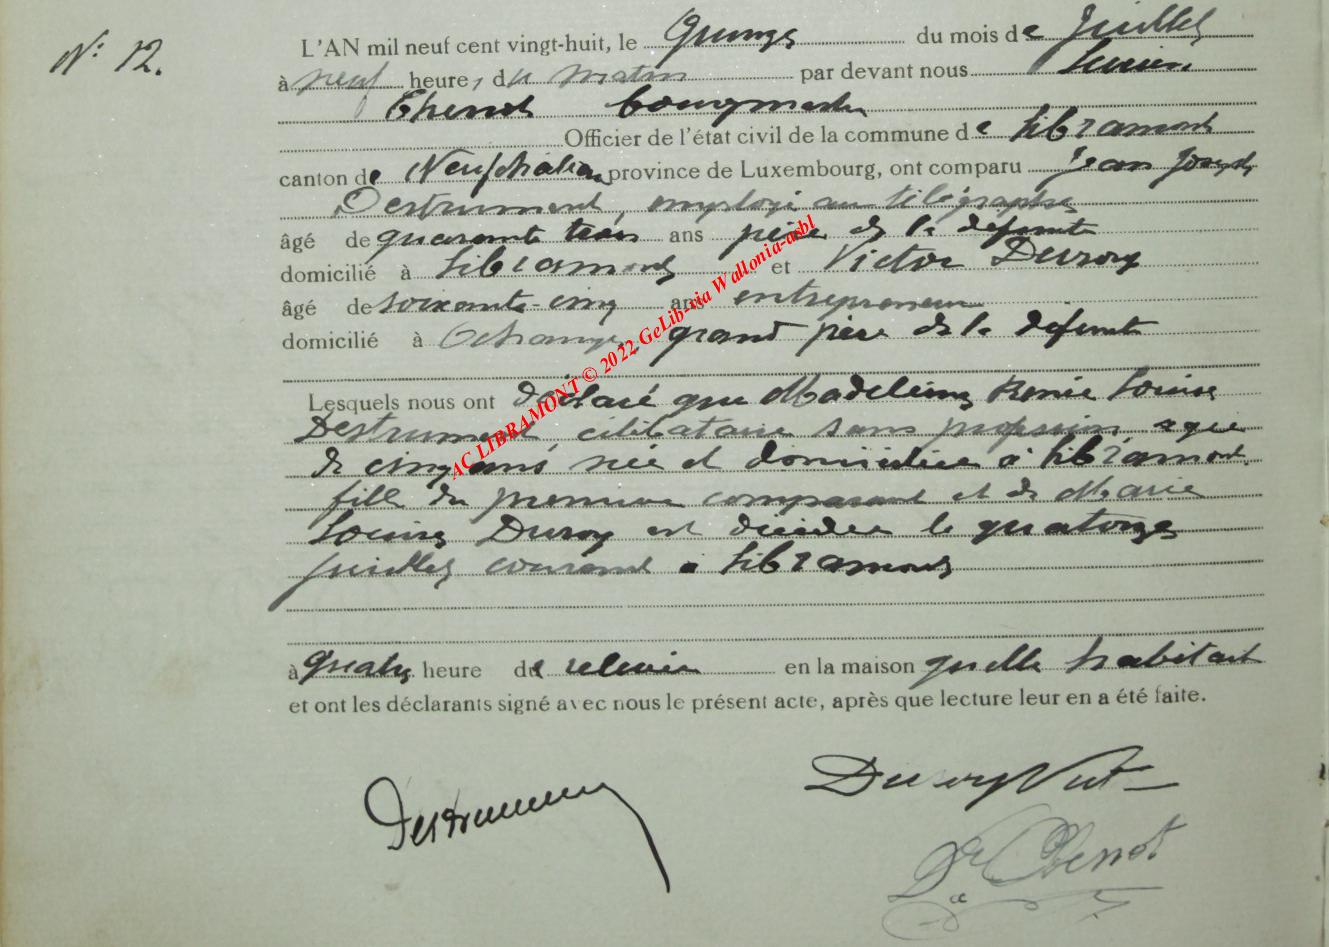 N° 12.
L'AN mil neuf cent vingt-huit, le quinze du mois de Juillet
à neuf heure, du matin par devant nous Lucien
Thenot bourgmestre
Officier de l'état civil de la commune de Libramont
canton de Neufchâteau province de Luxembourg, ont comparu Jean Joseph
Destrument, employé au télégraphe
âgé de quarante trois ans père de la défunte
domicilié à Libramont et Victor Duroy
âgé de soixante-cinq ans entrepreneur
domicilié à Ochamps, grand père de la défunte
Lesquels nous ont déclaré que Madeleine Renée Louise
Destrument, célibataire sans profession, agée
de cinq ans née et domiciliée à Libramont
fille du premier comparant et de Marie
Louise Duroy est décédée le quatorze
juillet courant à Libramont
à quatre heure de relevée en la maison qu'elle habitait
et ont les déclarants signé avec nous le présent acte, après que lecture leur en a été faite.
Destrument
Duroy Vict
Dr Thenot
AC LIBRAMONT © 2022 GeLib-via Wallonia-asbl